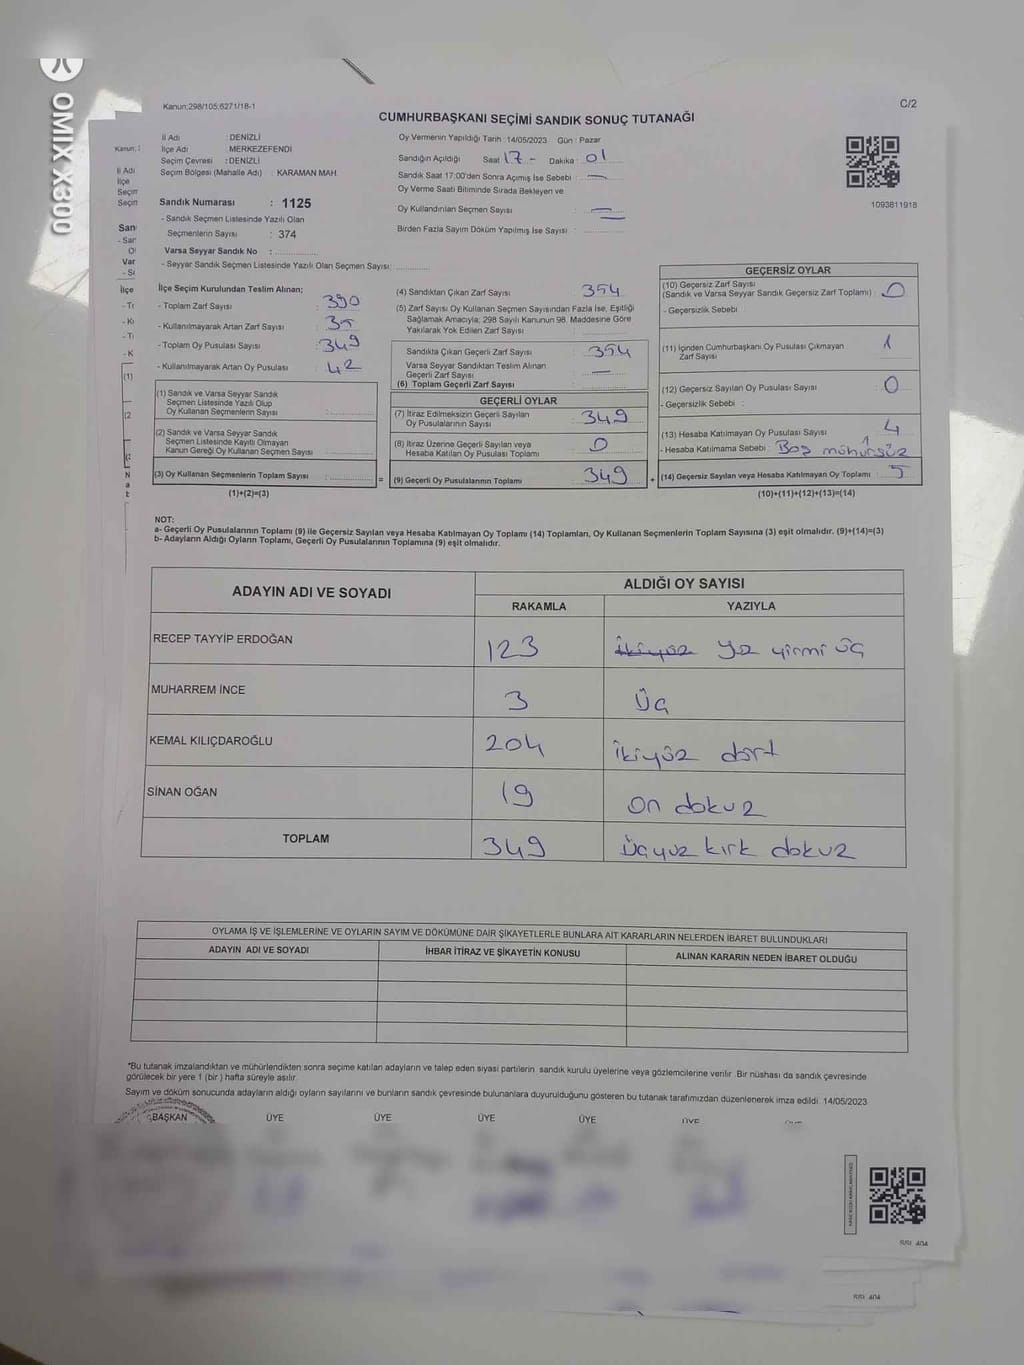 OMIX X300
Kanun;298/105;6271/18-1
C/2
CUMHURBAŞKANI SEÇİMİ SANDIK SONUÇ TUTANAĞI
İl Adı : DENİZLİ
İlçe Adı : MERKEZEFENDİ
Seçim Çevresi : DENİZLİ
Seçim Bölgesi (Mahalle Adı) : KARAMAN MAH.
Sandık Numarası : 1125
- Sandık Seçmen Listesinde Yazılı Olan
Seçmenlerin Sayısı : 374
Varsa Seyyar Sandık No :
- Seyyar Sandık Seçmen Listesinde Yazılı Olan Seçmen Sayısı
Oy Vermenin Yapıldığı Tarih : 14/05/2023 Gün : Pazar
Sandığın Açıldığı Saat 17 - Dakika : 01
Sandık Saat 17:00'den Sonra Açılmış İse Sebebi : —
Oy Verme Saati Bitiminde Sırada Bekleyen ve
Oy Kullandırılan Seçmen Sayısı : —
Birden Fazla Sayım Döküm Yapılmış İse Sayısı : —
1093811918
İlçe Seçim Kurulundan Teslim Alınan;
- Toplam Zarf Sayısı : 390
- Kullanılmayarak Artan Zarf Sayısı :
- Toplam Oy Pusulası Sayısı : 349
- Kullanılmayarak Artan Oy Pusulası : 42
(1) Sandık ve Varsa Seyyar Sandık
Seçmen Listesinde Yazılı Olup
Oy Kullanan Seçmenlerin Sayısı :
(2) Sandık ve Varsa Seyyar Sandık
Seçmen Listesinde Kayıtlı Olmayan
Kanun Gereği Oy Kullanan Seçmen Sayısı :
(3) Oy Kullanan Seçmenlerin Toplam Sayısı :
(1)+(2)=(3)
(4) Sandıktan Çıkan Zarf Sayısı : 354
(5) Zarf Sayısı Oy Kullanan Seçmen Sayısından Fazla İse, Eşitliği
Sağlamak Amacıyla; 298 Sayılı Kanunun 98. Maddesine Göre
Yakılarak Yok Edilen Zarf Sayısı :
Sandıkta Çıkan Geçerli Zarf Sayısı : 354
Varsa Seyyar Sandıktan Teslim Alınan
Geçerli Zarf Sayısı : —
(6) Toplam Geçerli Zarf Sayısı :
GEÇERLİ OYLAR
(7) İtiraz Edilmeksizin Geçerli Sayılan
Oy Pusulalarının Sayısı : 349
(8) İtiraz Üzerine Geçerli Sayılan veya
Hesaba Katılan Oy Pusulası Toplamı : 0
= (9) Geçerli Oy Pusulalarının Toplamı : 349 +
GEÇERSİZ OYLAR
(10) Geçersiz Zarf Sayısı
(Sandık ve Varsa Seyyar Sandık Geçersiz Zarf Toplamı) : 0
- Geçersizlik Sebebi :
(11) İçinden Cumhurbaşkanı Oy Pusulası Çıkmayan
Zarf Sayısı : 1
(12) Geçersiz Sayılan Oy Pusulası Sayısı : 0
- Geçersizlik Sebebi :
(13) Hesaba Katılmayan Oy Pusulası Sayısı : 4
- Hesaba Katılmama Sebebi : Boş 1 mühürsüz
(14) Geçersiz Sayılan veya Hesaba Katılmayan Oy Toplamı : 5
(10)+(11)+(12)+(13)=(14)
NOT:
a- Geçerli Oy Pusulalarının Toplamı (9) ile Geçersiz Sayılan veya Hesaba Katılmayan Oy Toplamı (14) Toplamları, Oy Kullanan Seçmenlerin Toplam Sayısına (3) eşit olmalıdır. (9)+(14)=(3)
b- Adayların Aldığı Oyların Toplamı, Geçerli Oy Pusulalarının Toplamına (9) eşit olmalıdır.
ADAYIN ADI VE SOYADI
ALDIĞI OY SAYISI
RAKAMLA YAZIYLA
RECEP TAYYİP ERDOĞAN 123 ikiyüz yüz yirmi üç
MUHARREM İNCE 3 Üç
KEMAL KILIÇDAROĞLU 204 ikiyüz dört
SİNAN OĞAN 19 on dokuz
TOPLAM 349 üçyüz kırk dokuz
OYLAMA İŞ VE İŞLEMLERİNE VE OYLARIN SAYIM VE DÖKÜMÜNE DAİR ŞİKAYETLERLE BUNLARA AİT KARARLARIN NELERDEN İBARET BULUNDUKLARI
ADAYIN ADI VE SOYADI İHBAR İTİRAZ VE ŞİKAYETİN KONUSU ALINAN KARARIN NEDEN İBARET OLDUĞU
*Bu tutanak imzalandıktan ve mühürlendikten sonra seçime katılan adayların ve talep eden siyasi partilerin sandık kurulu üyelerine veya gözlemcilerine verilir. Bir nüshası da sandık çevresinde
görülecek bir yere 1 (bir) hafta süreyle asılır.
Sayım ve döküm sonucunda adayların aldığı oyların sayılarını ve bunların sandık çevresinde bulunanlara duyurulduğunu gösteren bu tutanak tarafımızdan düzenlenerek imza edildi. 14/05/2023
BAŞKAN ÜYE ÜYE ÜYE ÜYE ÜYE
SSI 404
SSI 404